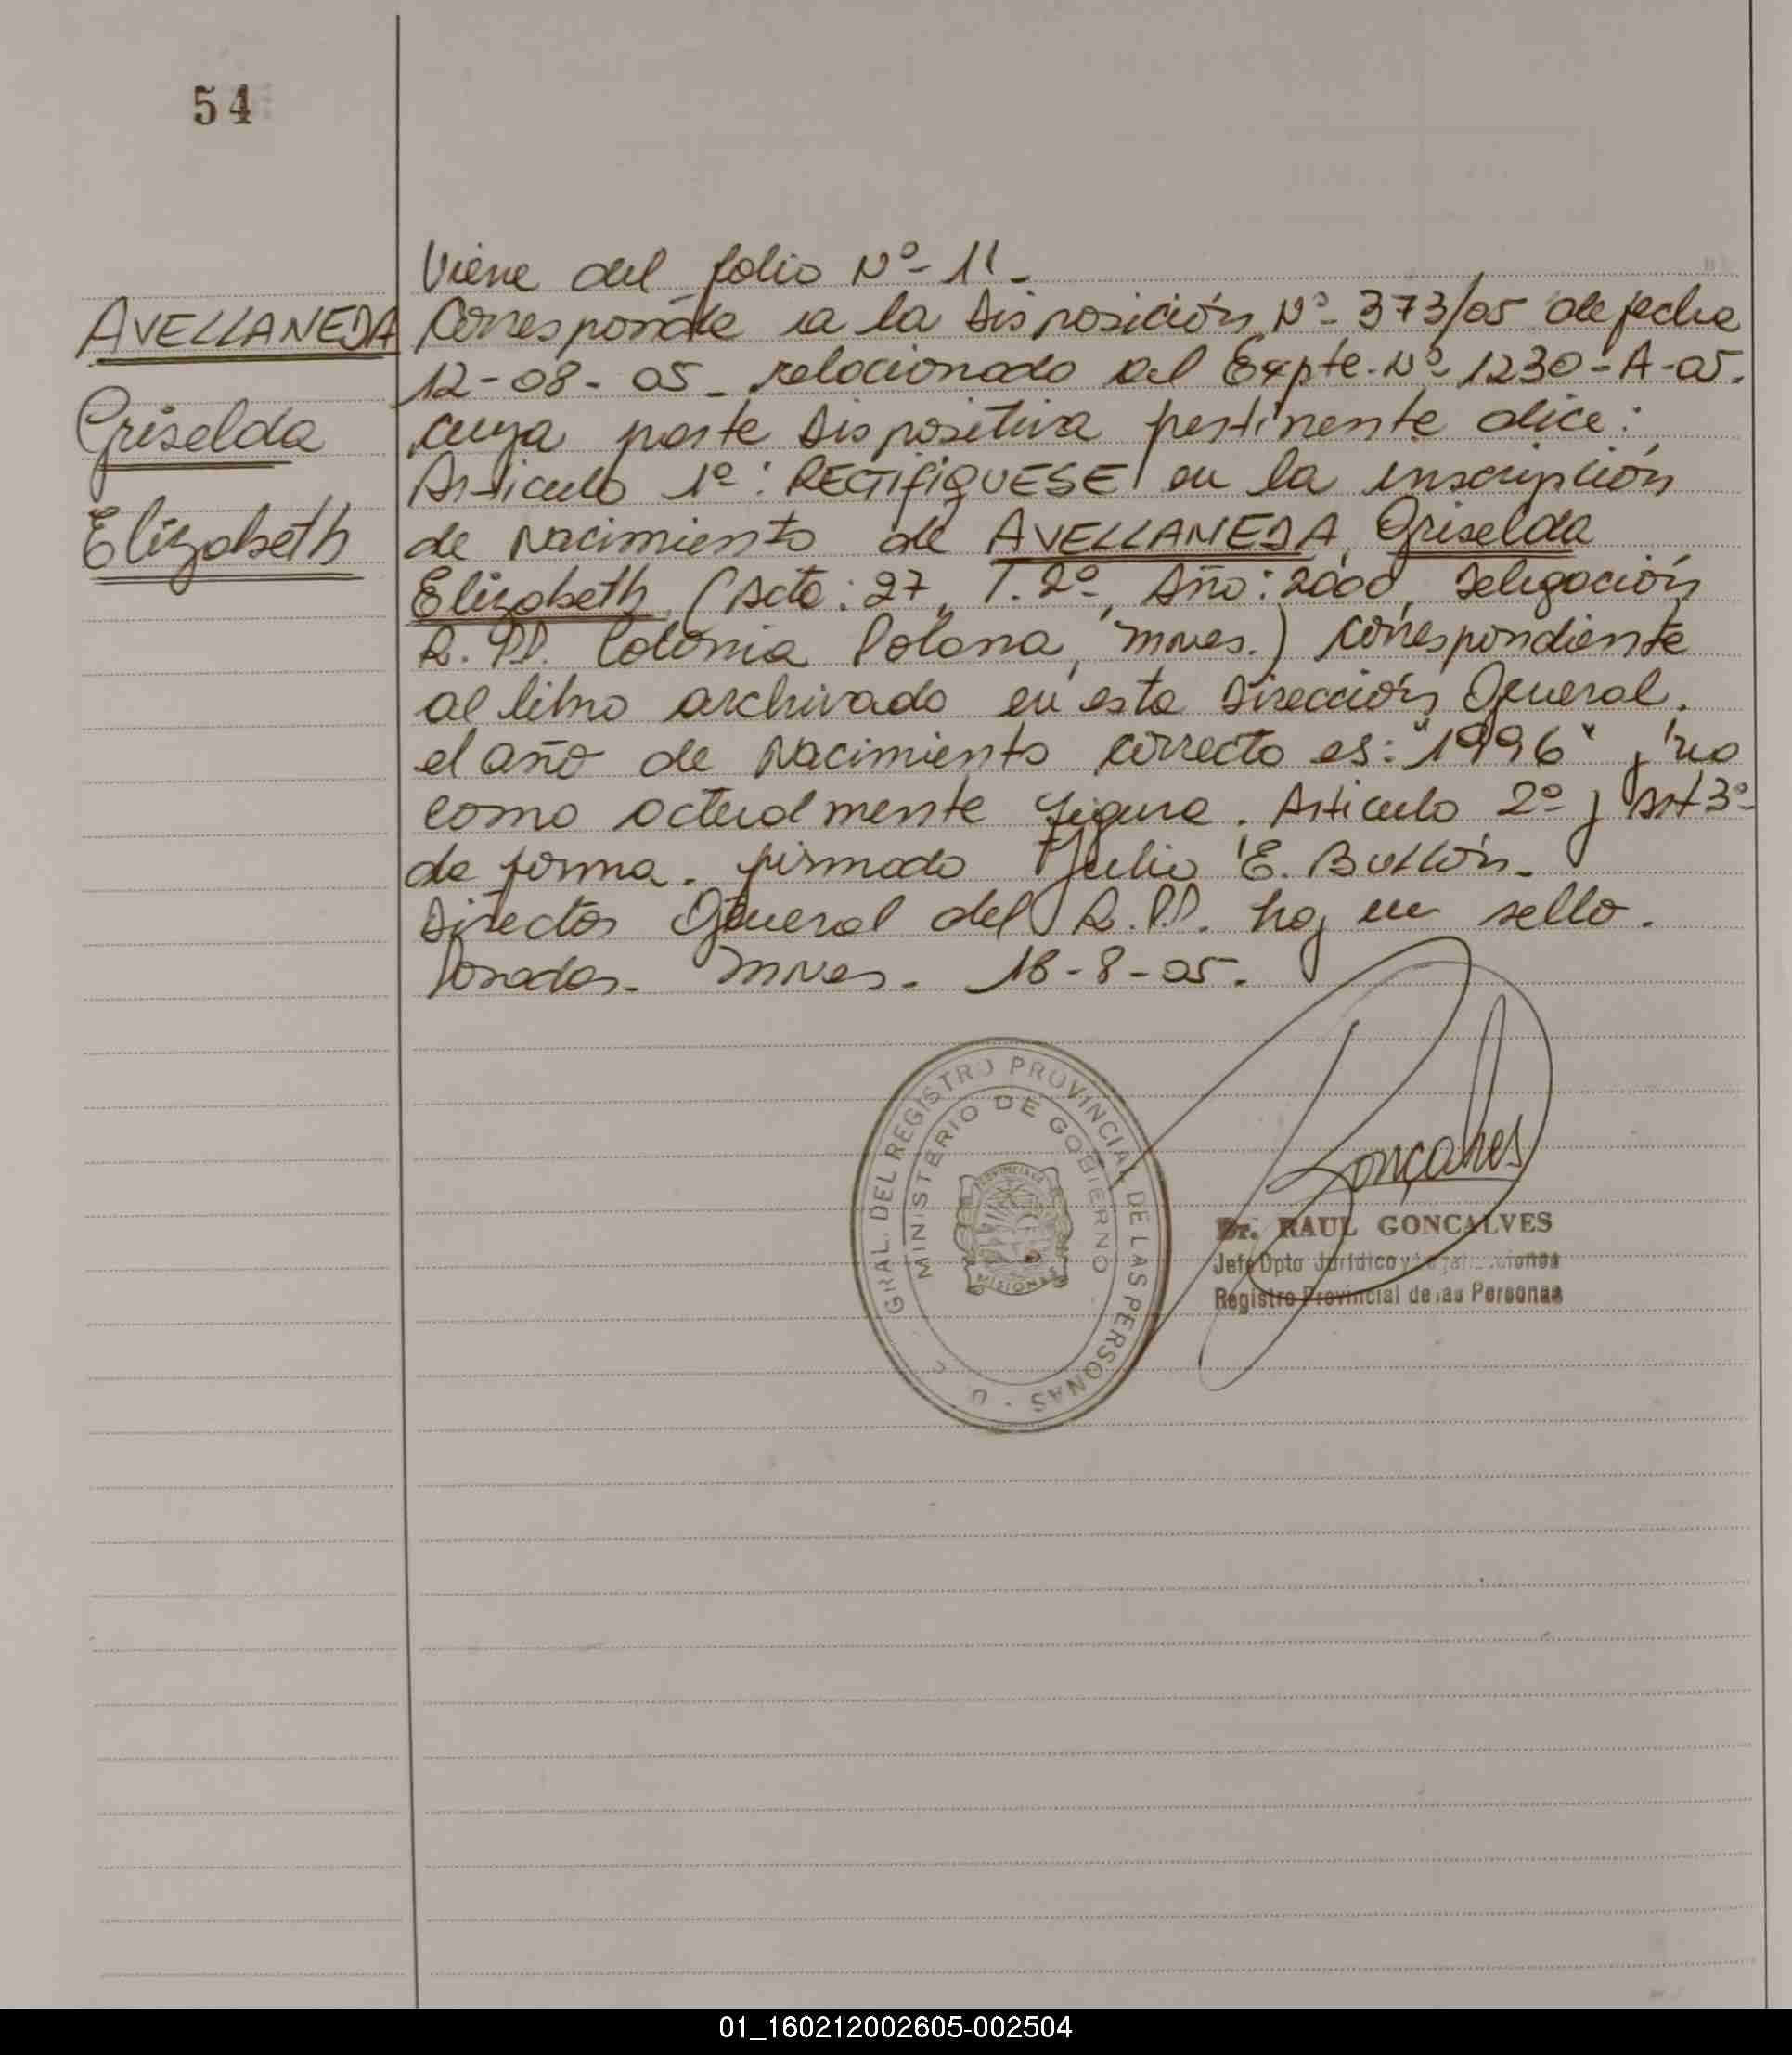 54
Viene del folio Nº- 11-
AVELLANEDA
Griselda
Elizabeth
Corresponde a la Disposición Nº- 373/05 de fecha
12-08-05- relacionado al Expte. Nº 1230-A-05.
cuya parte Dispositiva pertinente dice:
Articulo 1º: RECTIFIQUESE en la inscripción
de Nacimiento de AVELLANEDA, Griselda
Elizabeth, (Acta: 27, T. 2º, Año: 2000, Delegación
R. PP. Colonia Polana, Mnes.) correspondiente
al libro archivado en esta Dirección General.
el año de Nacimiento correcto es: "1996", y no
como actualmente figura. Articulo 2º y Art 3º
de forma. firmado Julio E. Bullón-
Director General del R.PP. hay un sello.
Posadas- Mnes. 18-8-05.
GRAL. DEL REGISTRO PROVINCIAL DE LAS PERSONAS
MINISTERIO DE GOBIERNO
MISIONES
Goncalves
Dr. RAUL GONCALVES
Jefe Dpto Jurídico y
Registro Provincial de las Personas
01_160212002605-002504